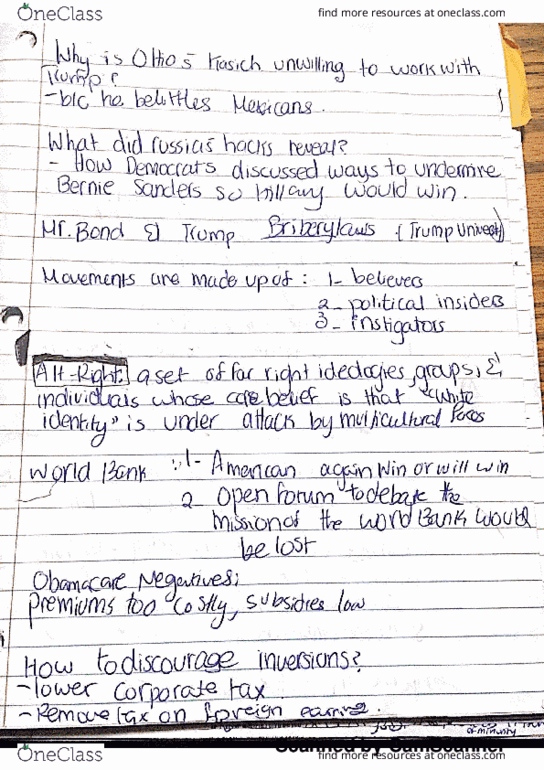 OneClass
find more resources at oneclass.com
Why is Ohio's Kasich unwilling to work with
Trump?
- b/c he belittles Mexicans.
What did russias hacks reveal?
- How Democrats discussed ways to undermine
Bernie Sanders so hillary would win.
Mr. Bond & Trump Briberylaws (Trump University)
Movements are made up of : 1- believers
2- political insiders
3- instigators
Alt-Right: a set of far right ideologies, groups, &
individuals whose core belief is that "White
identity" is under attack by multicultural forces
World Bank : 1- American again Win or will win
2 Open forum to debate the
mission of the world Bank would
be lost
Obamacare Negatives:
Premiums too costly, subsidies low
How to discourage inversions?
- lower corporate tax
- Remove tax on foreign
Scanned by CamScanner
OneClass
find more resources at oneclass.com